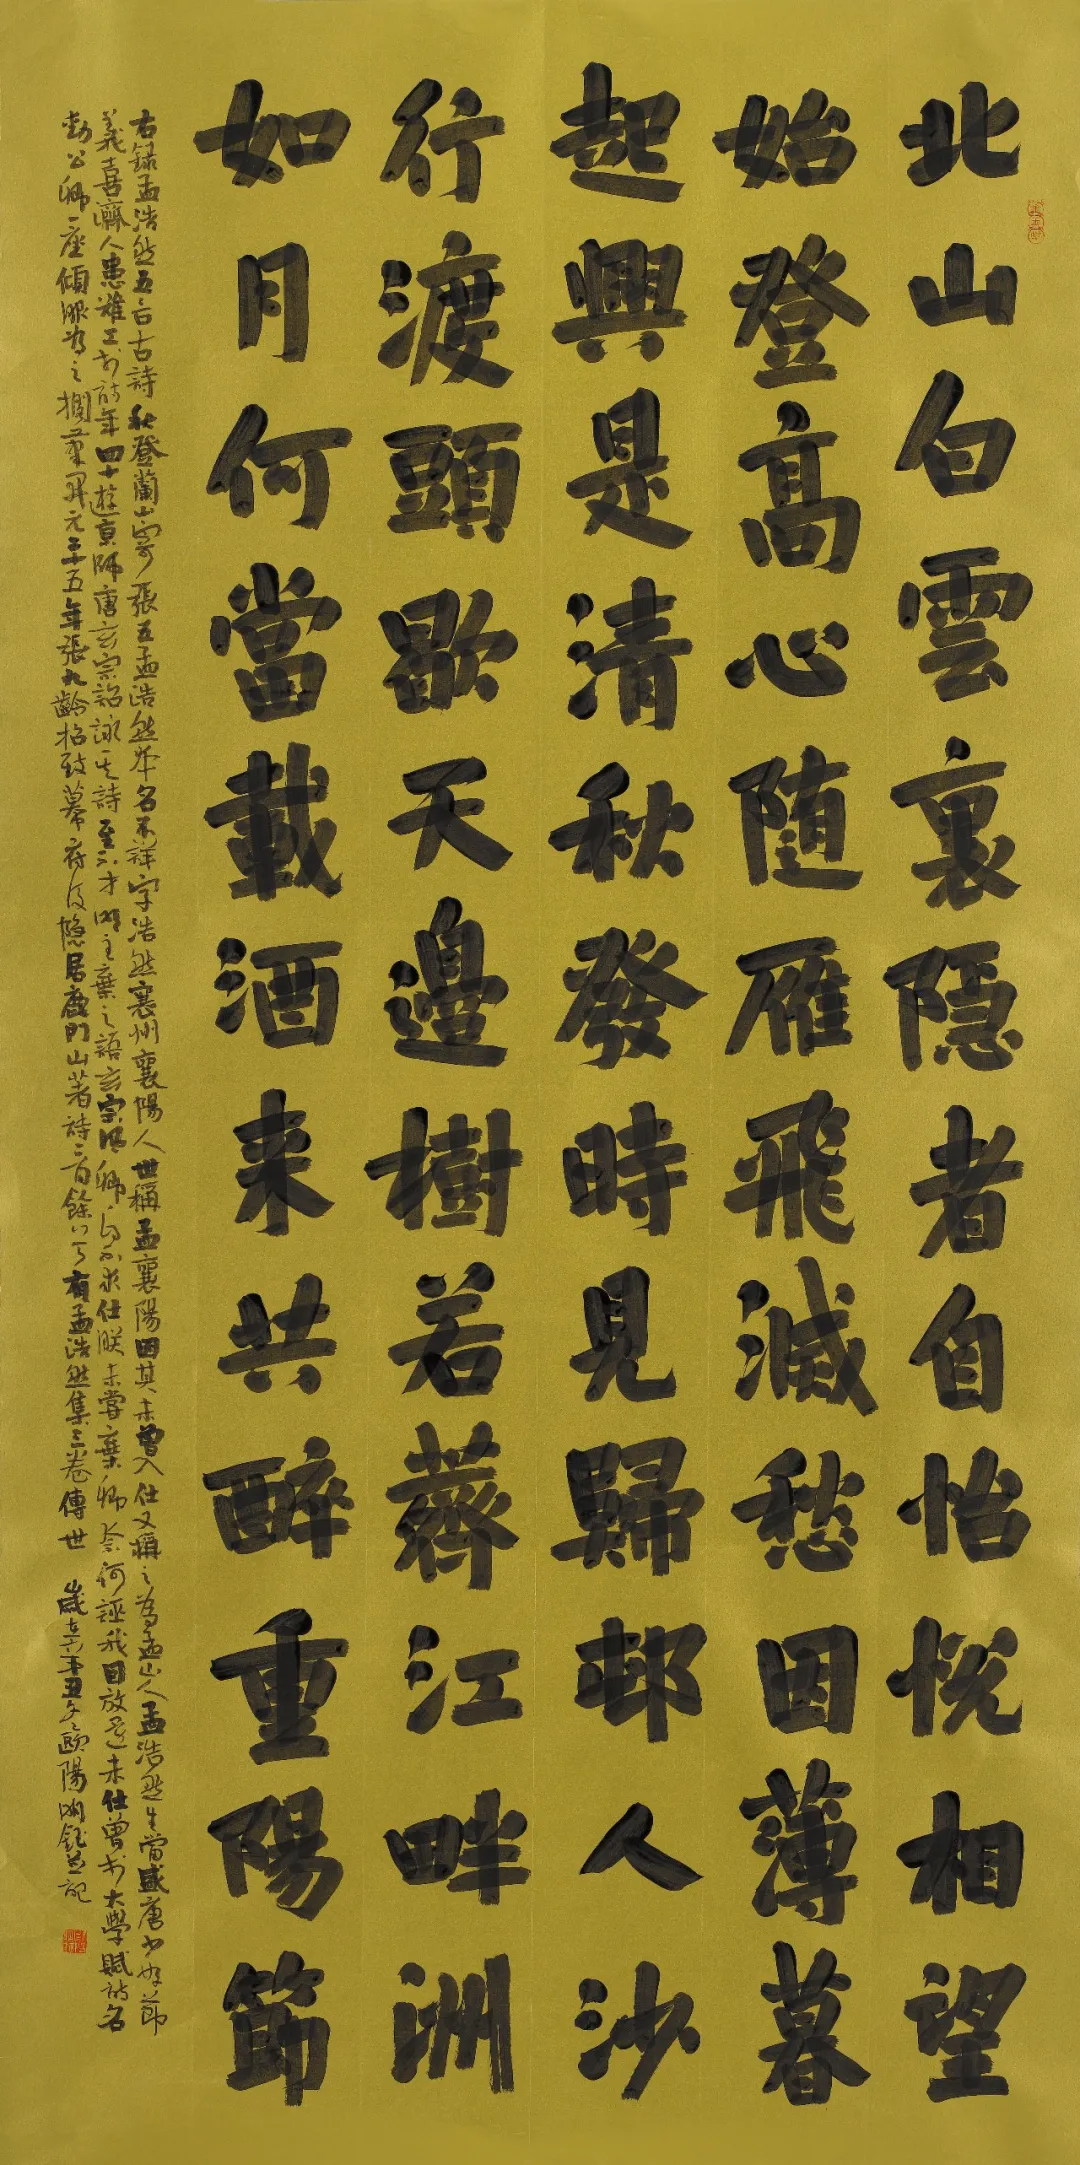 北山白雲裏隐者自怡悦相望
始登高心随雁飛滅愁因薄暮
起興是清秋發時見歸邨人沙
行渡頭歇天邊樹若薺江畔洲
如月何當載酒来共醉重陽節
右録孟浩然五言古詩秋登蘭山寄張五孟浩然本名不詳字浩然襄州襄陽人世稱孟襄陽因其未曾入仕又稱之為孟山人孟浩然生當盛唐少好節
義喜濟人患難工於詩年四十遊京師唐玄宗詔詠其詩至不才明主棄之語玄宗謂卿自不求仕朕未嘗棄卿奈何誣我因放還未仕曾於大學賦詩名
動公卿一座傾服為之擱筆開元二十五年張九齡招致幕府後隐居鹿門山著詩二百餘首有孟浩然集三卷傳世 歲在辛丑冬歐陽明鈺並記